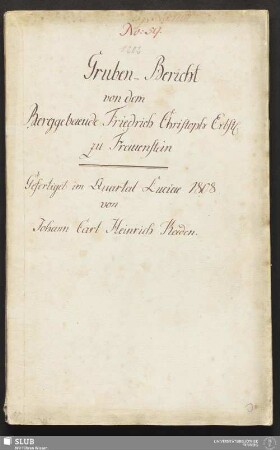 No: 54.
1808
Gruben-Bericht
von dem
Berggebaeude Friedrich Christoph Erbst.
zu Frauenstein
Gefertiget im Quartal Luciae 1808
von
Johann Carl Heinrich
SLUB
Wir führen Wissen.